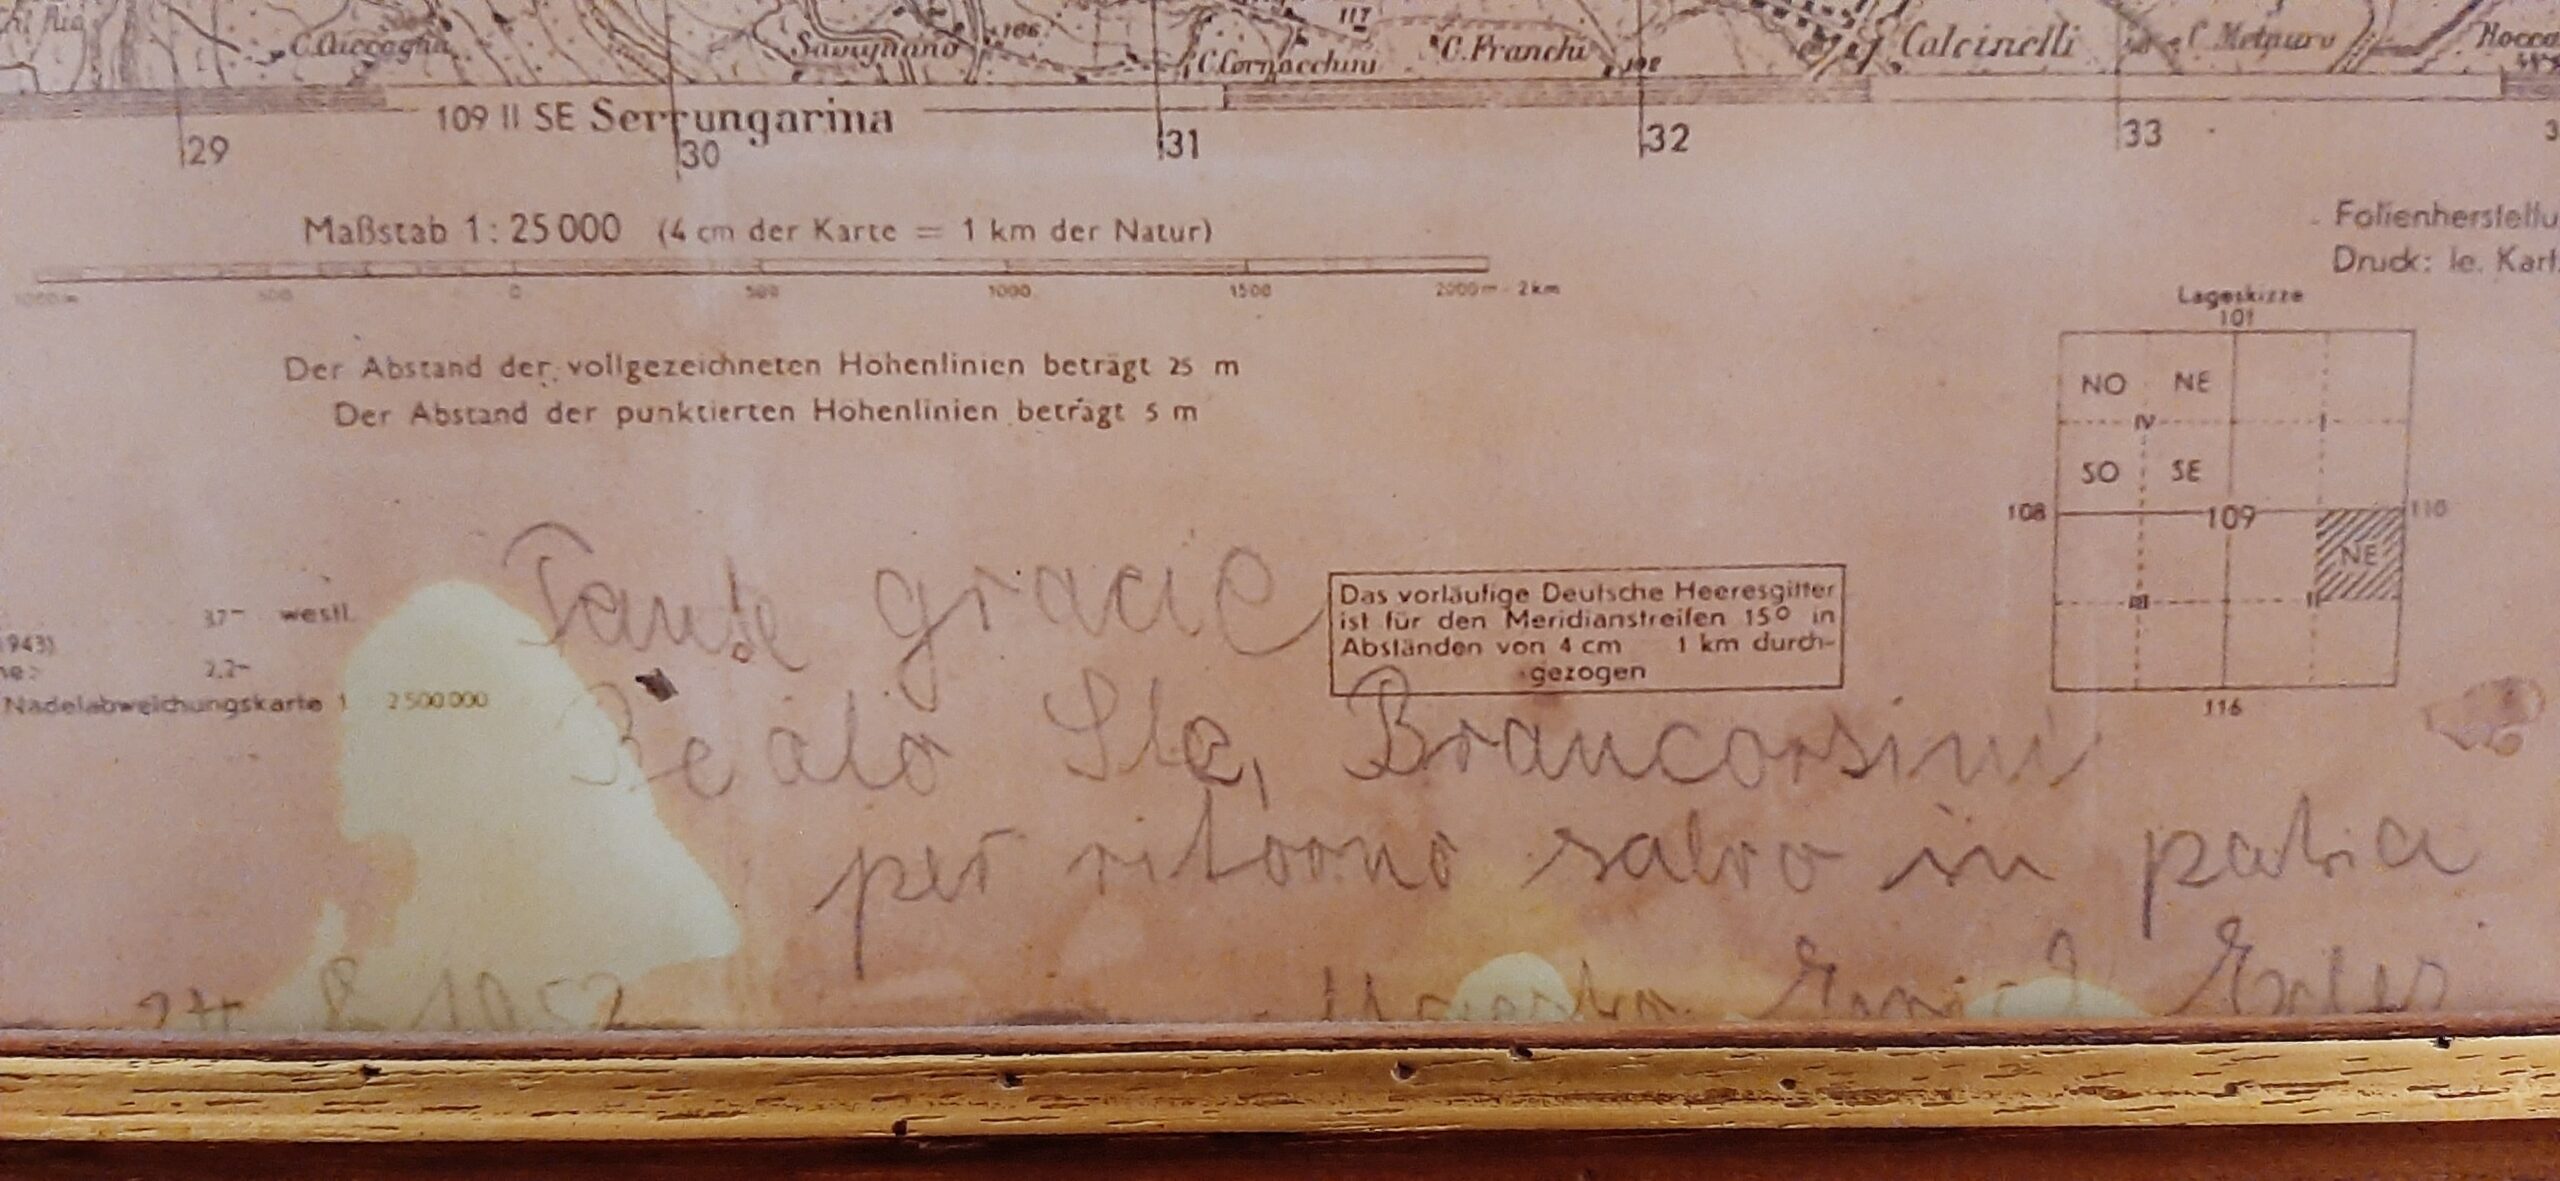 C. Cuccagna
Savignano
106
117
C. Cornacchini
C. Franchi
102
Calcinelli
C. Metauro
109 II SE Serrungarina
29 30 31 32 33
Maßstab 1 : 25 000 (4 cm der Karte = 1 km der Natur)
1000 m 500 0 500 1000 1500 2000 m - 2 km
Folienherstellu
Druck: le. Kart.
Der Abstand der vollgezeichneten Höhenlinien beträgt 25 m
Der Abstand der punktierten Höhenlinien beträgt 5 m
Lageskizze
101
NO NE
IV I
SO SE
108 109 110
NE
III II
116
37 westl.
1943)
2,2
Nadelabweichungskarte 1 2 500 000
Das vorläufige Deutsche Heeresgitter
ist für den Meridianstreifen 15° in
Abständen von 4 cm 1 km durch-
gezogen
Tante gracie
Beato Ste, Brancorsini
per ritorno salvo in patria
24 8 1952